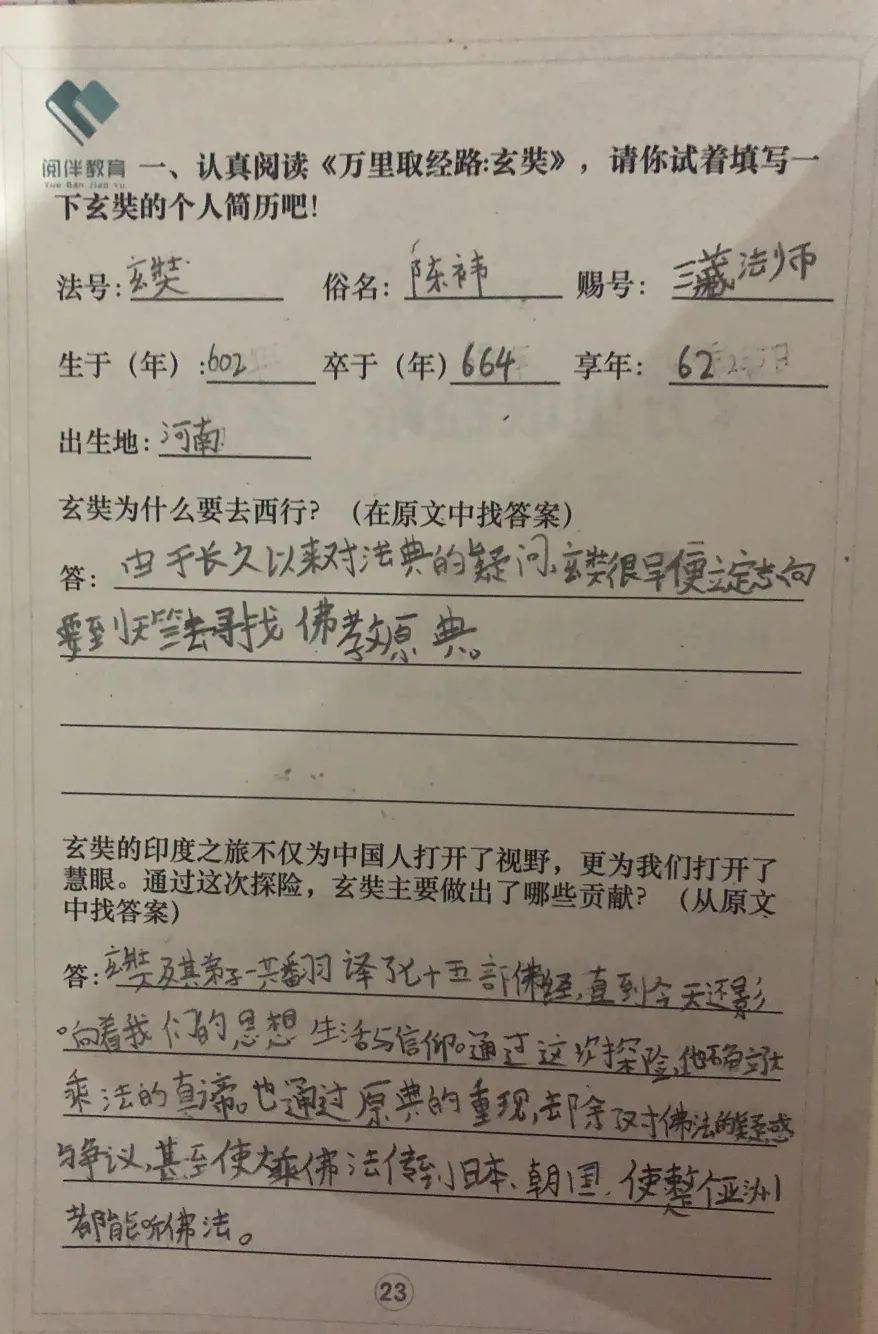 阅伴教育
Yue Ban Jiao Yu
一、认真阅读《万里取经路:玄奘》，请你试着填写一
下玄奘的个人简历吧!
法号: 玄奘 俗名: 陈祎 赐号: 三藏法师
生于（年）: 602 卒于（年） 664 享年: 62
出生地: 河南
玄奘为什么要去西行? （在原文中找答案）
答: 由于长久以来对法典的疑问,玄奘很早便立定志向
要到天竺去寻找佛教原典。
玄奘的印度之旅不仅为中国人打开了视野，更为我们打开了
慧眼。通过这次探险，玄奘主要做出了哪些贡献? （从原文
中找答案）
答: 玄奘及其弟子一共翻译了七十五部佛经,直到今天还影
响着我们的思想生活与信仰。通过这次探险,他不确立大
乘法的真谛。也通过原典的重现,去除对佛法的疑惑
与争议,甚至使大乘佛法传到日本、朝国,使整个亚洲
都能听佛法。
23